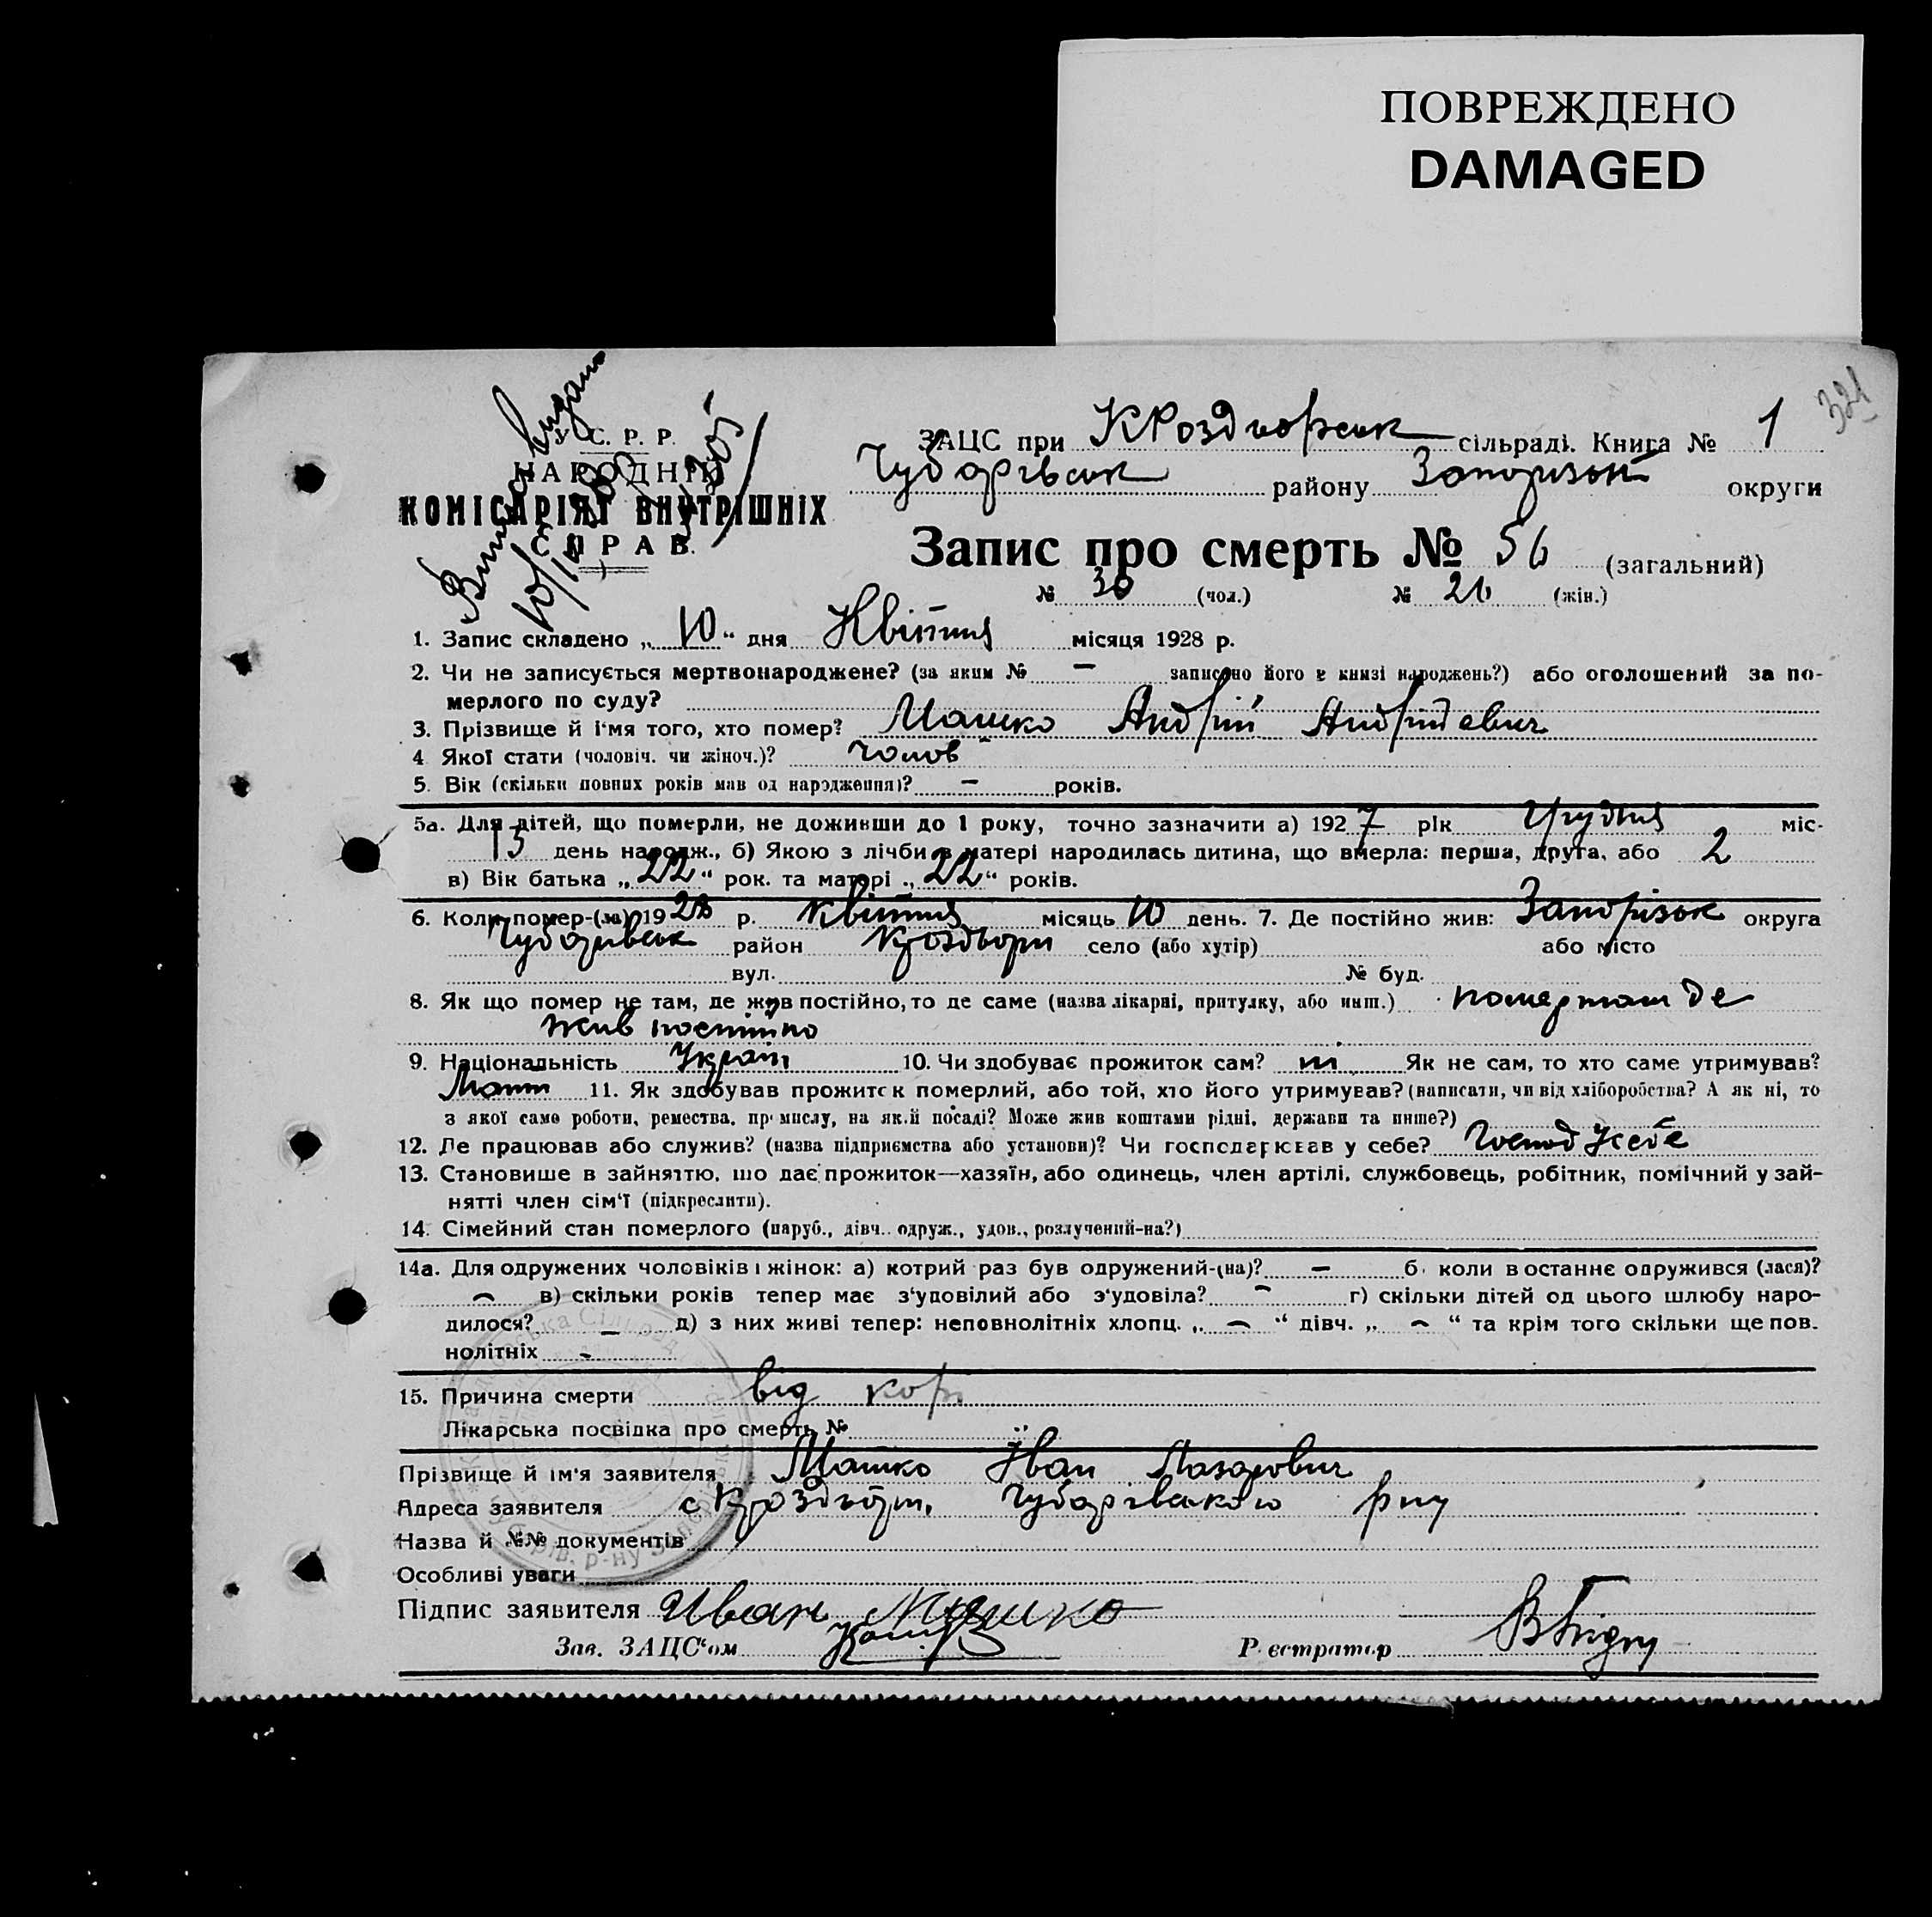 ПОВРЕЖДЕНО
DAMAGED
321
У. С. Р. Р.
НАРОДНІЙ
КОМІСАРІЯТ ВНУТРІШНІХ
СПРАВ.
ЗАЦС при КРоздворськ сільраді. Книга № 1
Чубарівськ району Запорізької округи
Запис про смерть № 56 (загальний)
№ 30 (чол.) № 26 (жін.)
1. Запис складено „ 10 “ дня Квітня місяця 1928 р.
2. Чи не записується мертвонароджене? (за яким № — записано його в книзі народжень?) або оголошений за по-
мерлого по суду?
3. Прізвище й ім'я того, хто помер? Машко Андрій Андрієвич
4 Якої стати (чоловіч. чи жіноч.)? чолов
5. Вік (скільки повних років мав од народження)? — років.
5а. Для дітей, що померли, не доживши до 1 року, точно зазначити а) 1927 рік Грудня міс-
15 день народж., б) Якою з лічби в матері народилась дитина, що вмерла: перша, друга, або 2
в) Вік батька „ 22 “ рок. та матері „ 22 “ років.
6. Коли помер-(ла) 1928 р. квітня місяць 10 день. 7. Де постійно жив: Запорізьк округа
Чубарівськ район Кроздори село (або хутір) або місто
вул. № буд.
8. Як що помер не там, де жив постійно, то де саме (назва лікарні, притулку, або инш.) помер там де
жив постійно
9. Національність Україн 10. Чи здобуває прожиток сам? ні Як не сам, то хто саме утримував?
Мати 11. Як здобував прожиток померлий, або той, хто його утримував? (написати, чи від хліборобства? А як ні, то
з якої саме роботи, ремества, промислу, на якій посаді? Може жив коштами рідні, держави та инше?)
12. Де працював або служив? (назва підприємства або установи)? Чи господарював у себе? Господ у себе
13. Становище в зайняттю, що дає прожиток—хазяїн, або одинець, член артілі, службовець, робітник, помічний у зай-
нятті член сім'ї (підкреслити).
14. Сімейний стан померлого (паруб., дівч.. одруж., удов., розлучений-на?)
14а. Для одружених чоловіків і жінок: а) котрий раз був одружений-(на)? — б. коли востаннє одружився (лася)?
— в) скільки років тепер має з'удовілий або з'удовіла? — г) скільки дітей од цього шлюбу наро-
дилося? — д) з них живі тепер: неповнолітніх хлопц. „ — “ дівч. „ — “ та крім того скільки ще пов.
нолітніх -
15. Причина смерти від корі
Лікарська посвідка про смерть №
Прізвище й ім'я заявителя Машко Іван Лазарович
Адреса заявителя с Кроздори, Чубарівського р-ну
Назва й №№ документів
Особливі уваги
Підпис заявителя Иван Машко
Зав. ЗАЦС'ом
Реєстратор